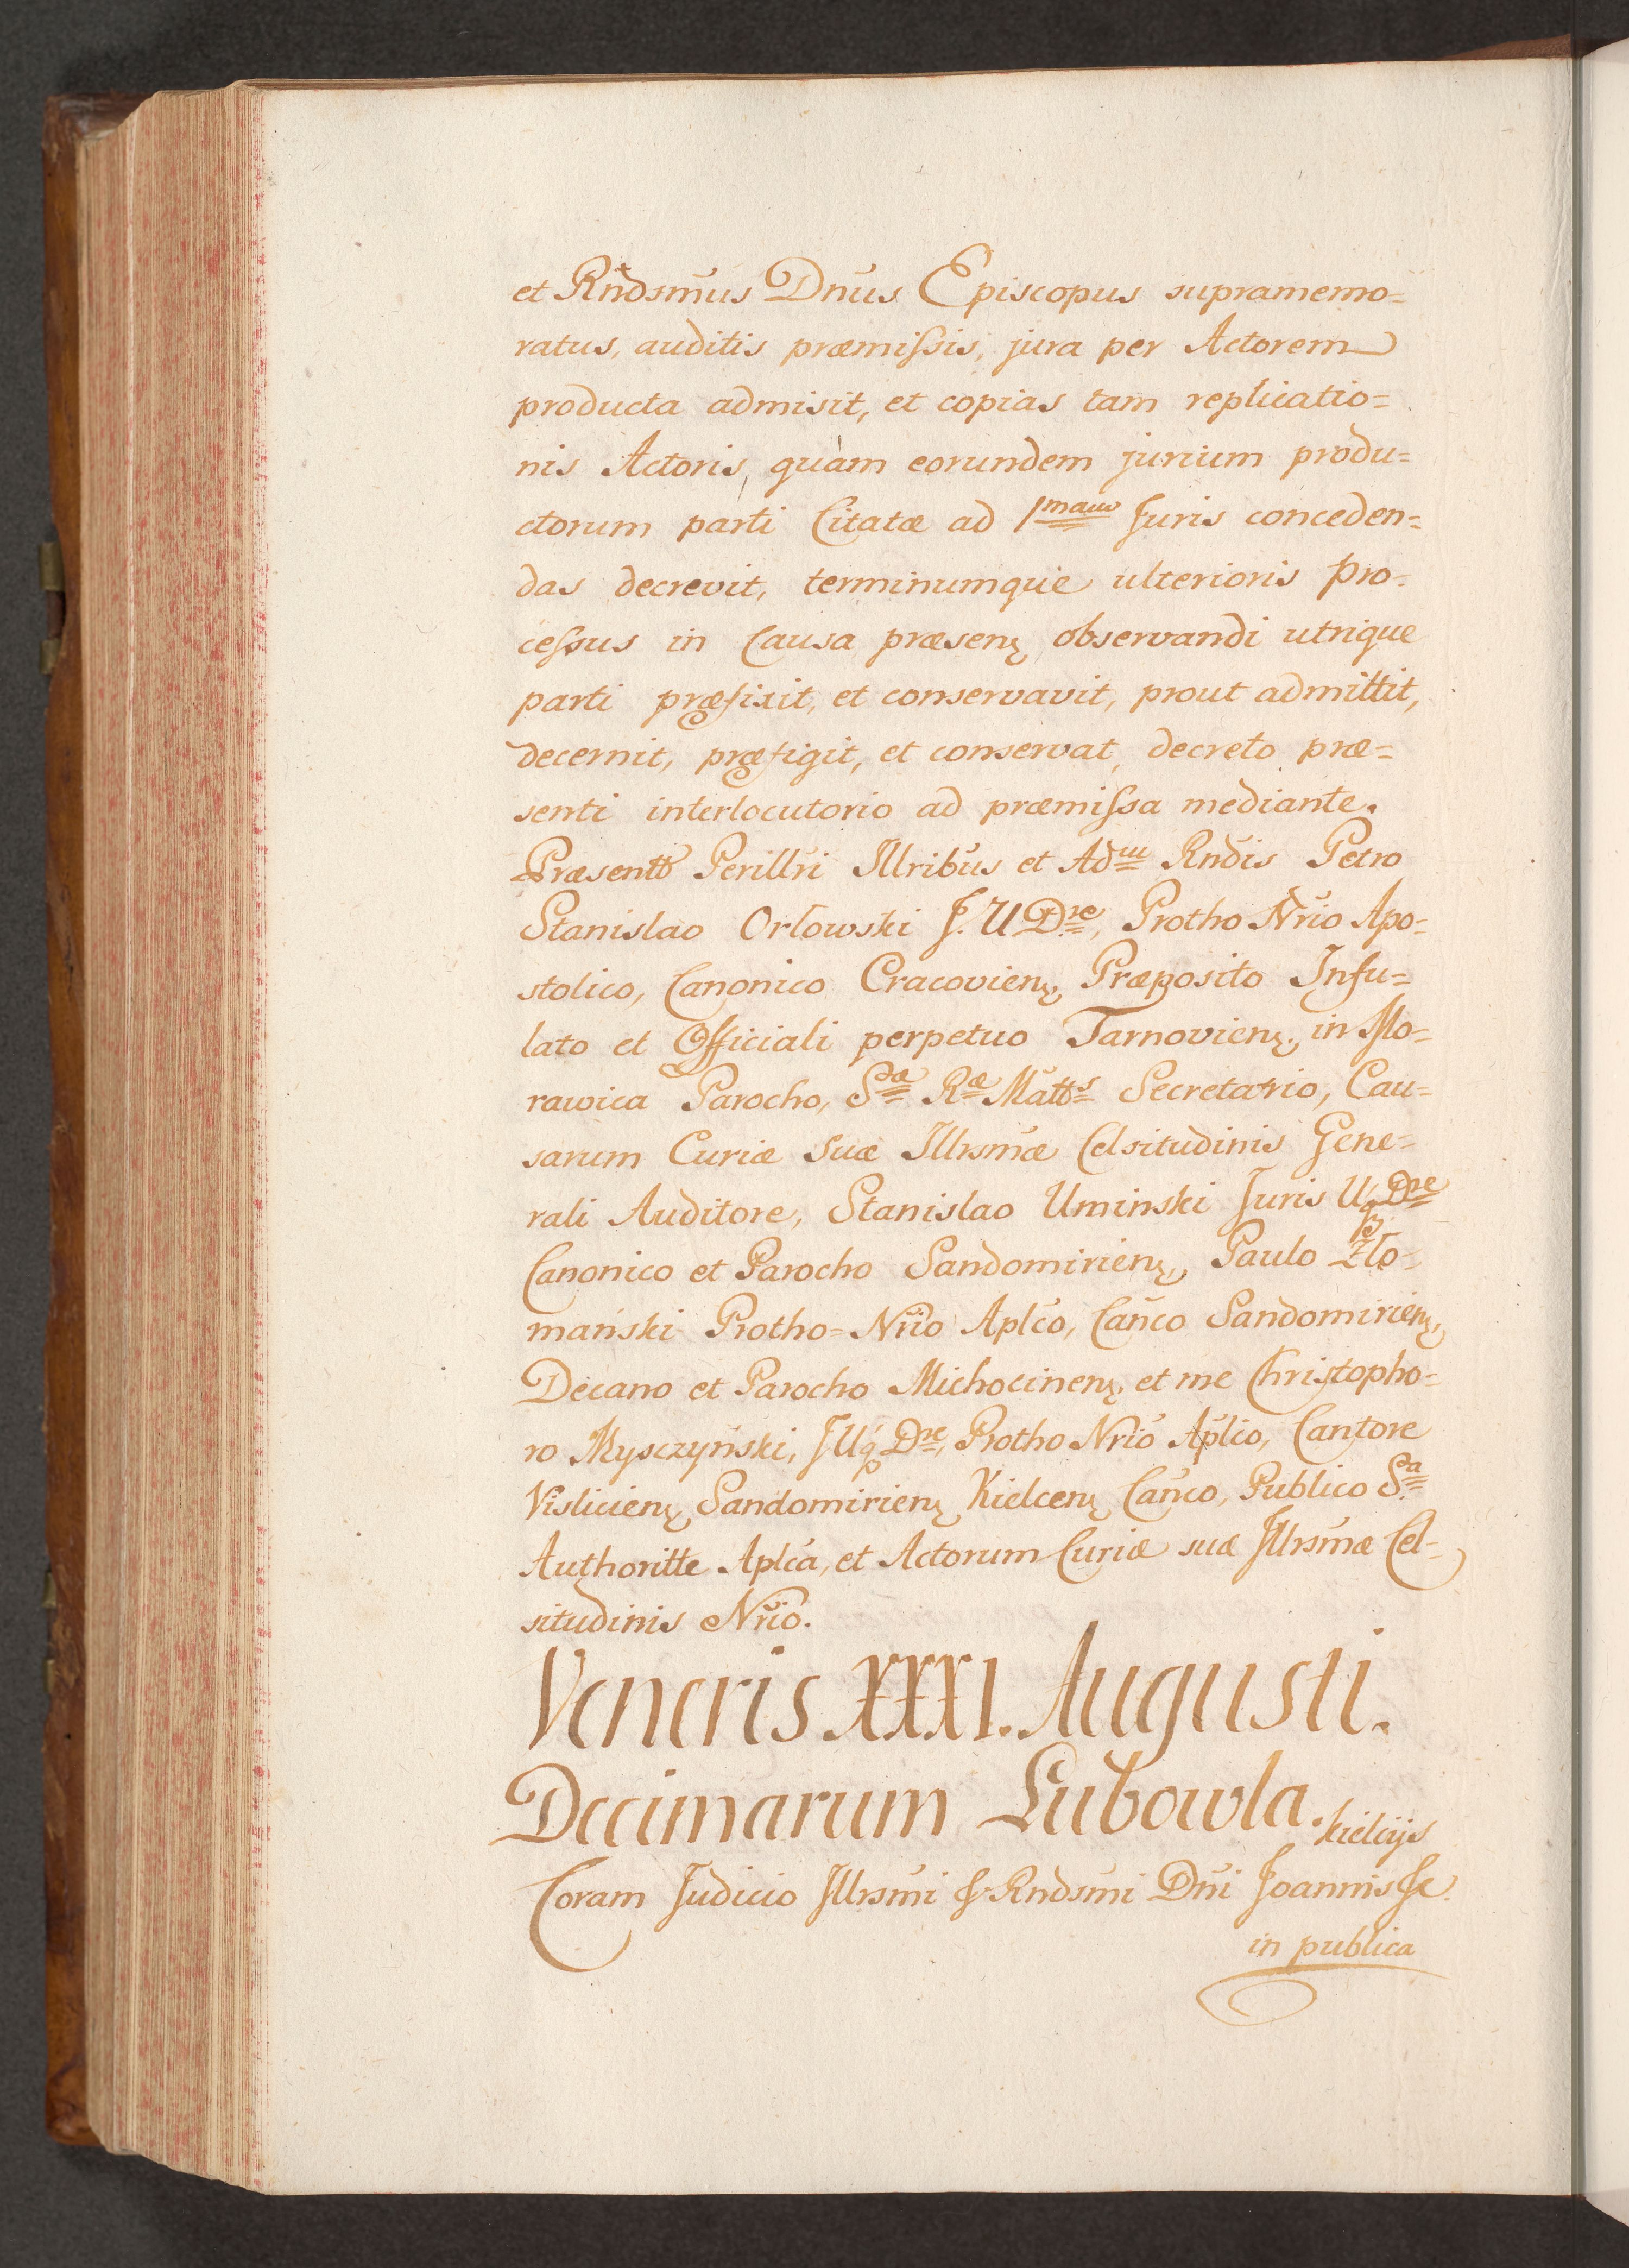 et Rńdsmūs Dnūs Episcopus supramemo=
ratus, auditis præmiſsis, jura per Actorem
producta admisit, et copias tam replicatio=
nis Actoris, quàm eorundem jurium produ=
ctorum parti Citatæ ad 1mam Juris conceden=
das decrevit, terminumque ulterioris pro=
ceſsus in Causa præsenę observandi utrique
parti præfixit, et conservavit, prout admittit,
decernit, præfigit, et conservat, decreto præ=
senti interlocutorio ad præmiſsa mediante.
Præsentb Perillri Illribūs et Adm Rndis Petro
Stanislao Orłowski J. U Dre, Protho Nrio Apo=
stolico, Canonico Cracovienę, Præposito Infu=
lato et Officiali perpetuo Tarnovienę, in Mo=
rawica Parocho, Sæ Ræ Mattis Secretario, Cau=
sarum Curiæ suæ Illrsmæ Celsitudinis Gene=
rali Auditore, Stanislao Uminski Juris Uq Dre
Canonico et Parocho Sandomirienę, Paulo
mański Protho=Nrio Aplco, Canco Sandomirienę,
Decano et Parocho Michocinenę, et me Christopho=
ro Myszyński, JUq Dre, Protho Nrio Aplco, Cantore
Vislicienę, Sandomirienę Kielcenę Canco, Publico Sa
Authoritte Aplca, et Actorum Curiæ suæ Illrsmæ Cel=
situdinis Nrio.
Veneris XXXI. Augusti.
Decimarum Lubowla. Kielcijs
Coram Judicio Illrsmi & Rndsmi Dni Joannis &c.
in publica